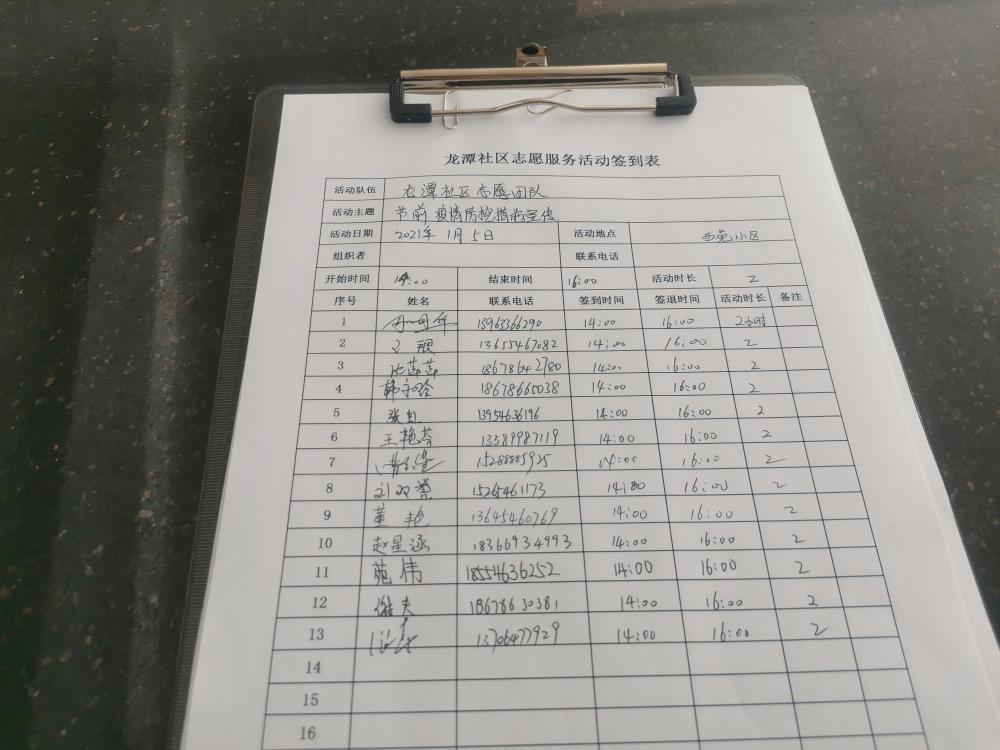 龙潭社区志愿服务活动签到表
活动队伍 龙潭社区志愿团队
活动主题 节前疫情防控措施宣传
活动日期 2021年 1月5日 活动地点 西苑小区
组织者 联系电话
开始时间 14:00 结束时间 16:00 活动时长 2
序号 姓名 联系电话 签到时间 签退时间 活动时长 备注
1 13963366290 14:00 16:00 2小时
2 13655467082 14:00 16:00 2
3 18678642780 14:00 16:00 2
4 18678665038 14:00 16:00 2
5 13954636196 14:00 16:00 2
6 王艳芬 13589987119 14:00 16:00 2
7 14:00 16:00 2
8 15265461173 14:00 16:00 2
9 董艳 13645460769 14:00 16:00 2
10 赵星涵 18366934993 14:00 16:00 2
11 苑伟 18554636252 14:00 16:00 2
12 谢夫 18678630381 14:00 16:00 2
13 13706477929 14:00 16:00 2
14
15
16